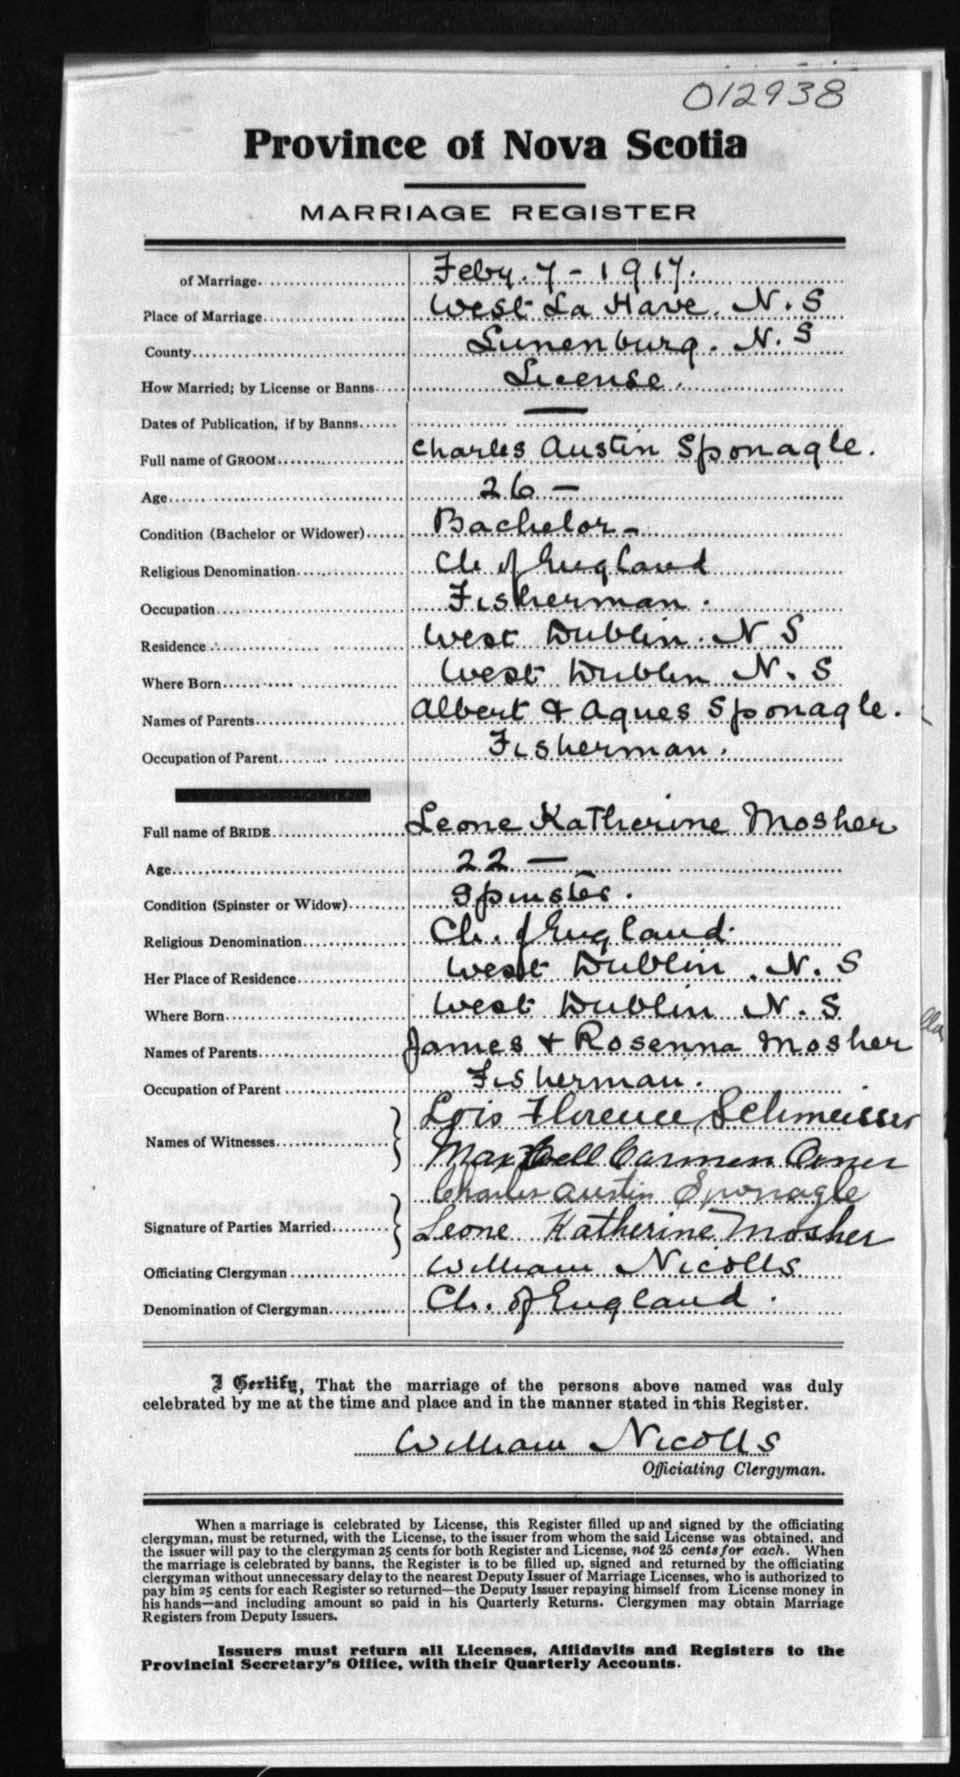 012938
Province of Nova Scotia
MARRIAGE REGISTER
of Marriage Feby. 7 - 1917.
Place of Marriage West La Have. N. S
County Lunenburg. N. S
How Married; by License or Banns License.
Dates of Publication, if by Banns —
Full name of GROOM Charles Austin Sponagle.
Age 26 —
Condition (Bachelor or Widower) Bachelor —
Religious Denomination Ch of England
Occupation Fisherman.
Residence West Dublin. N S
Where Born West Dublin N. S
Names of Parents Albert & Agnes Sponagle.
Occupation of Parent Fisherman.
Full name of BRIDE Leone Katherine Mosher
Age 22 —
Condition (Spinster or Widow) Spinster.
Religious Denomination Ch. of England.
Her Place of Residence West Dublin. N. S
Where Born West Dublin N. S
Names of Parents James & Rosenna Mosher
Occupation of Parent Fisherman.
Lois Florence Schmeisser
Names of Witnesses
Maxwell Carmen
Charles Austin Sponagle
Signature of Parties Married
Leone Katherine Mosher
Officiating Clergyman William Nicolls
Denomination of Clergyman Ch. of England.
I Certify, That the marriage of the persons above named was duly
celebrated by me at the time and place and in the manner stated in this Register.
William Nicolls
Officiating Clergyman.
When a marriage is celebrated by License, this Register filled up and signed by the officiating
clergyman, must be returned, with the License, to the issuer from whom the said License was obtained, and
the issuer will pay to the clergyman 25 cents for both Register and License, not 25 cents for each. When
the marriage is celebrated by banns, the Register is to be filled up, signed and returned by the officiating
clergyman without unnecessary delay to the nearest Deputy Issuer of Marriage Licenses, who is authorized to
pay him 25 cents for each Register so returned—the Deputy Issuer repaying himself from License money in
his hands—and including amount so paid in his Quarterly Returns. Clergymen may obtain Marriage
Registers from Deputy Issuers.
Issuers must return all Licenses, Affidavits and Registers to the
Provincial Secretary's Office, with their Quarterly Accounts.